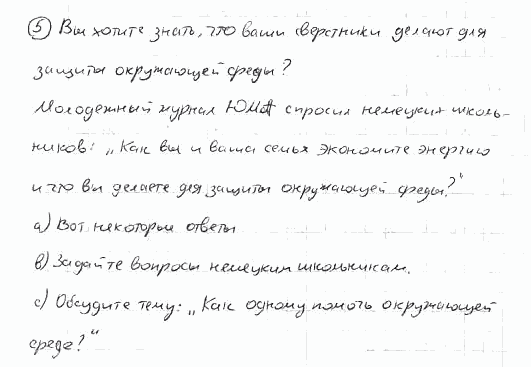 ⑤ Вы хотите знать, что ваши сверстники делают для
защиты окружающей среды?
Молодежный журнал ЮМА спросил немецких школь-
ников: „Как вы и ваша семья экономите энергию
и что вы делаете для защиты окружающей среды?"
а) Вот некоторые ответы
в) Задайте вопросы немецким школьникам.
с) Обсудите тему: „Как одному помочь окружающей
среде?"